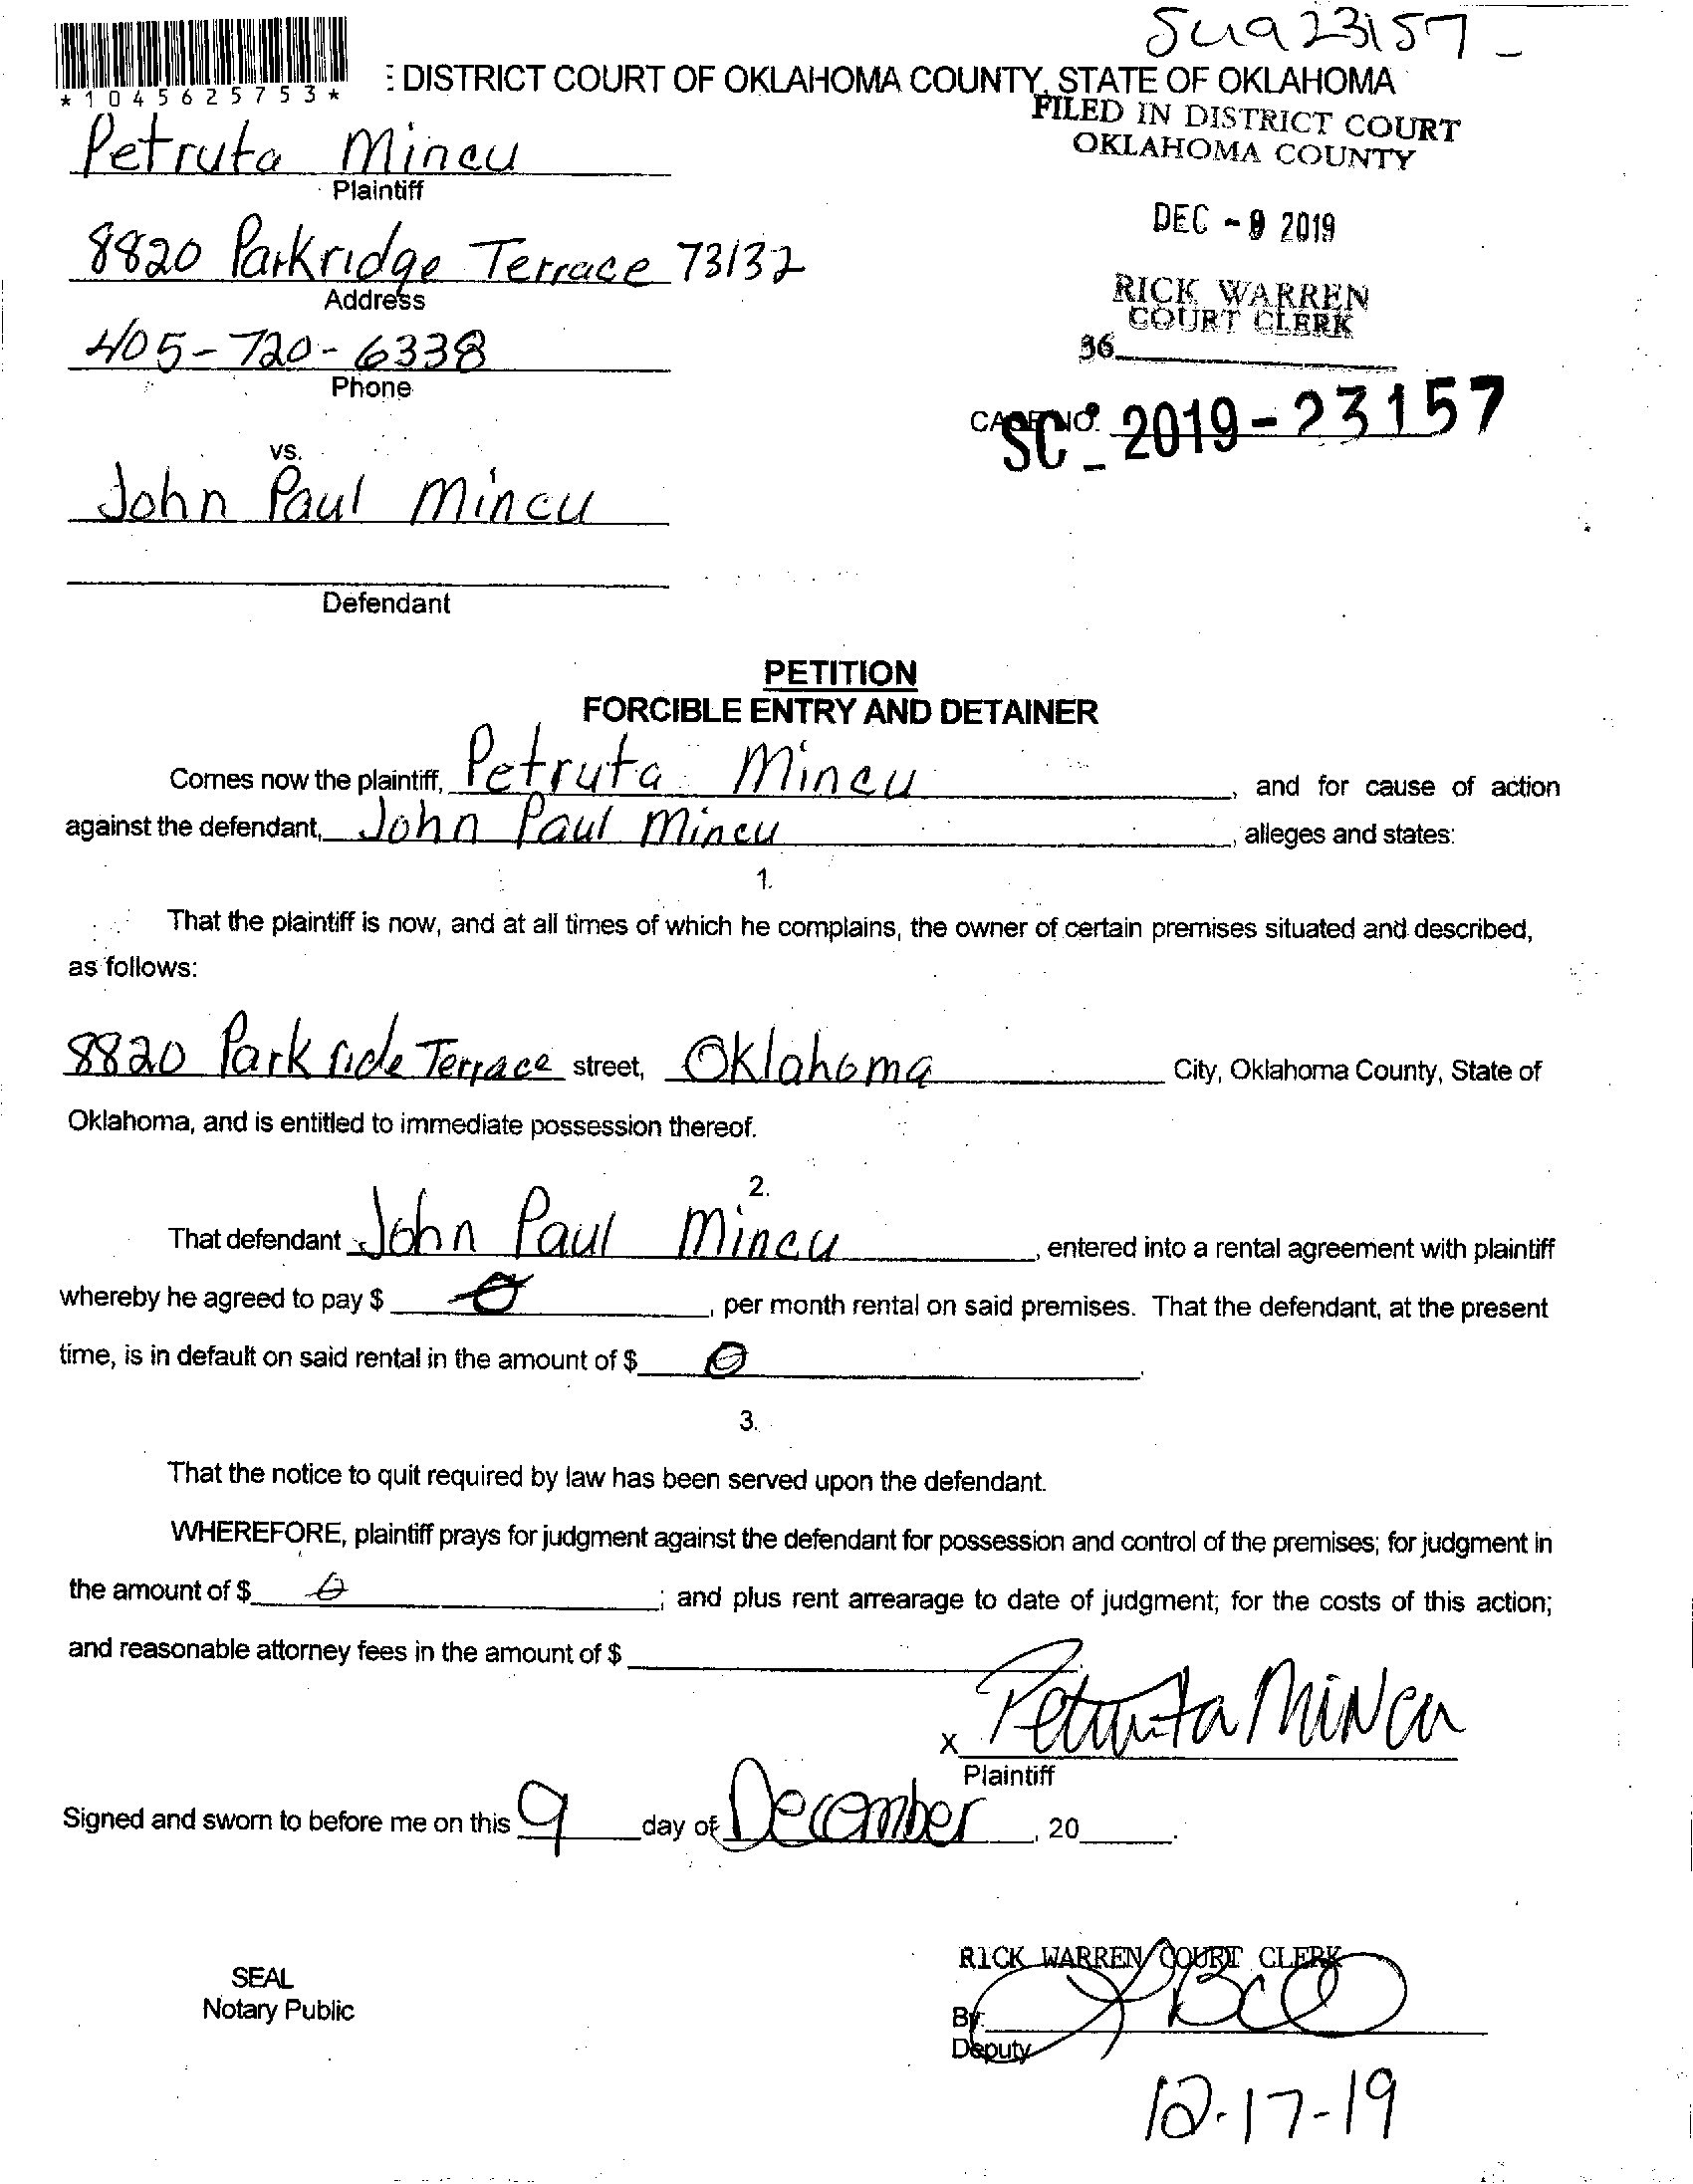 SC1923157-
*1045625753*
: DISTRICT COURT OF OKLAHOMA COUNTY, STATE OF OKLAHOMA
FILED IN DISTRICT COURT
OKLAHOMA COUNTY
Petruta Mincu
Plaintiff
DEC - 9 2019
8820 Parkridge Terrace 73132
Address
RICK WARREN
COURT CLERK
405-720-6338
Phone
36
CASE NO.
SC - 2019-23157
vs.
John Paul Mincu
Defendant
PETITION
FORCIBLE ENTRY AND DETAINER
Comes now the plaintiff, Petruta Mincu, and for cause of action
against the defendant, John Paul Mincu, alleges and states:
1.
That the plaintiff is now, and at all times of which he complains, the owner of certain premises situated and described,
as follows:
8820 Park ride Terrace street, Oklahoma City, Oklahoma County, State of
Oklahoma, and is entitled to immediate possession thereof.
2.
That defendant John Paul Mincu, entered into a rental agreement with plaintiff
whereby he agreed to pay $ 0, per month rental on said premises. That the defendant, at the present
time, is in default on said rental in the amount of $ 0.
3.
That the notice to quit required by law has been served upon the defendant.
WHEREFORE, plaintiff prays for judgment against the defendant for possession and control of the premises; for judgment in
the amount of $ 0; and plus rent arrearage to date of judgment; for the costs of this action;
and reasonable attorney fees in the amount of $
x Petruta Mincu
Plaintiff
Signed and sworn to before me on this 9 day of December, 20.
RICK WARREN COURT CLERK
SEAL
Notary Public
By:
Deputy
12-17-19